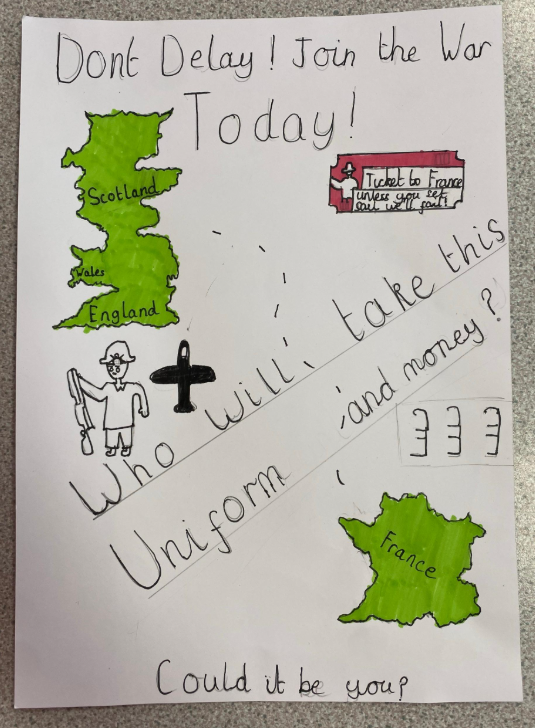 Dont Delay! Join the War
Today!
Scotland
Wales
England
Ticket to France
unless you set
sail we'll fail!
Who will take this
Uniform and money?
France
Could it be you?